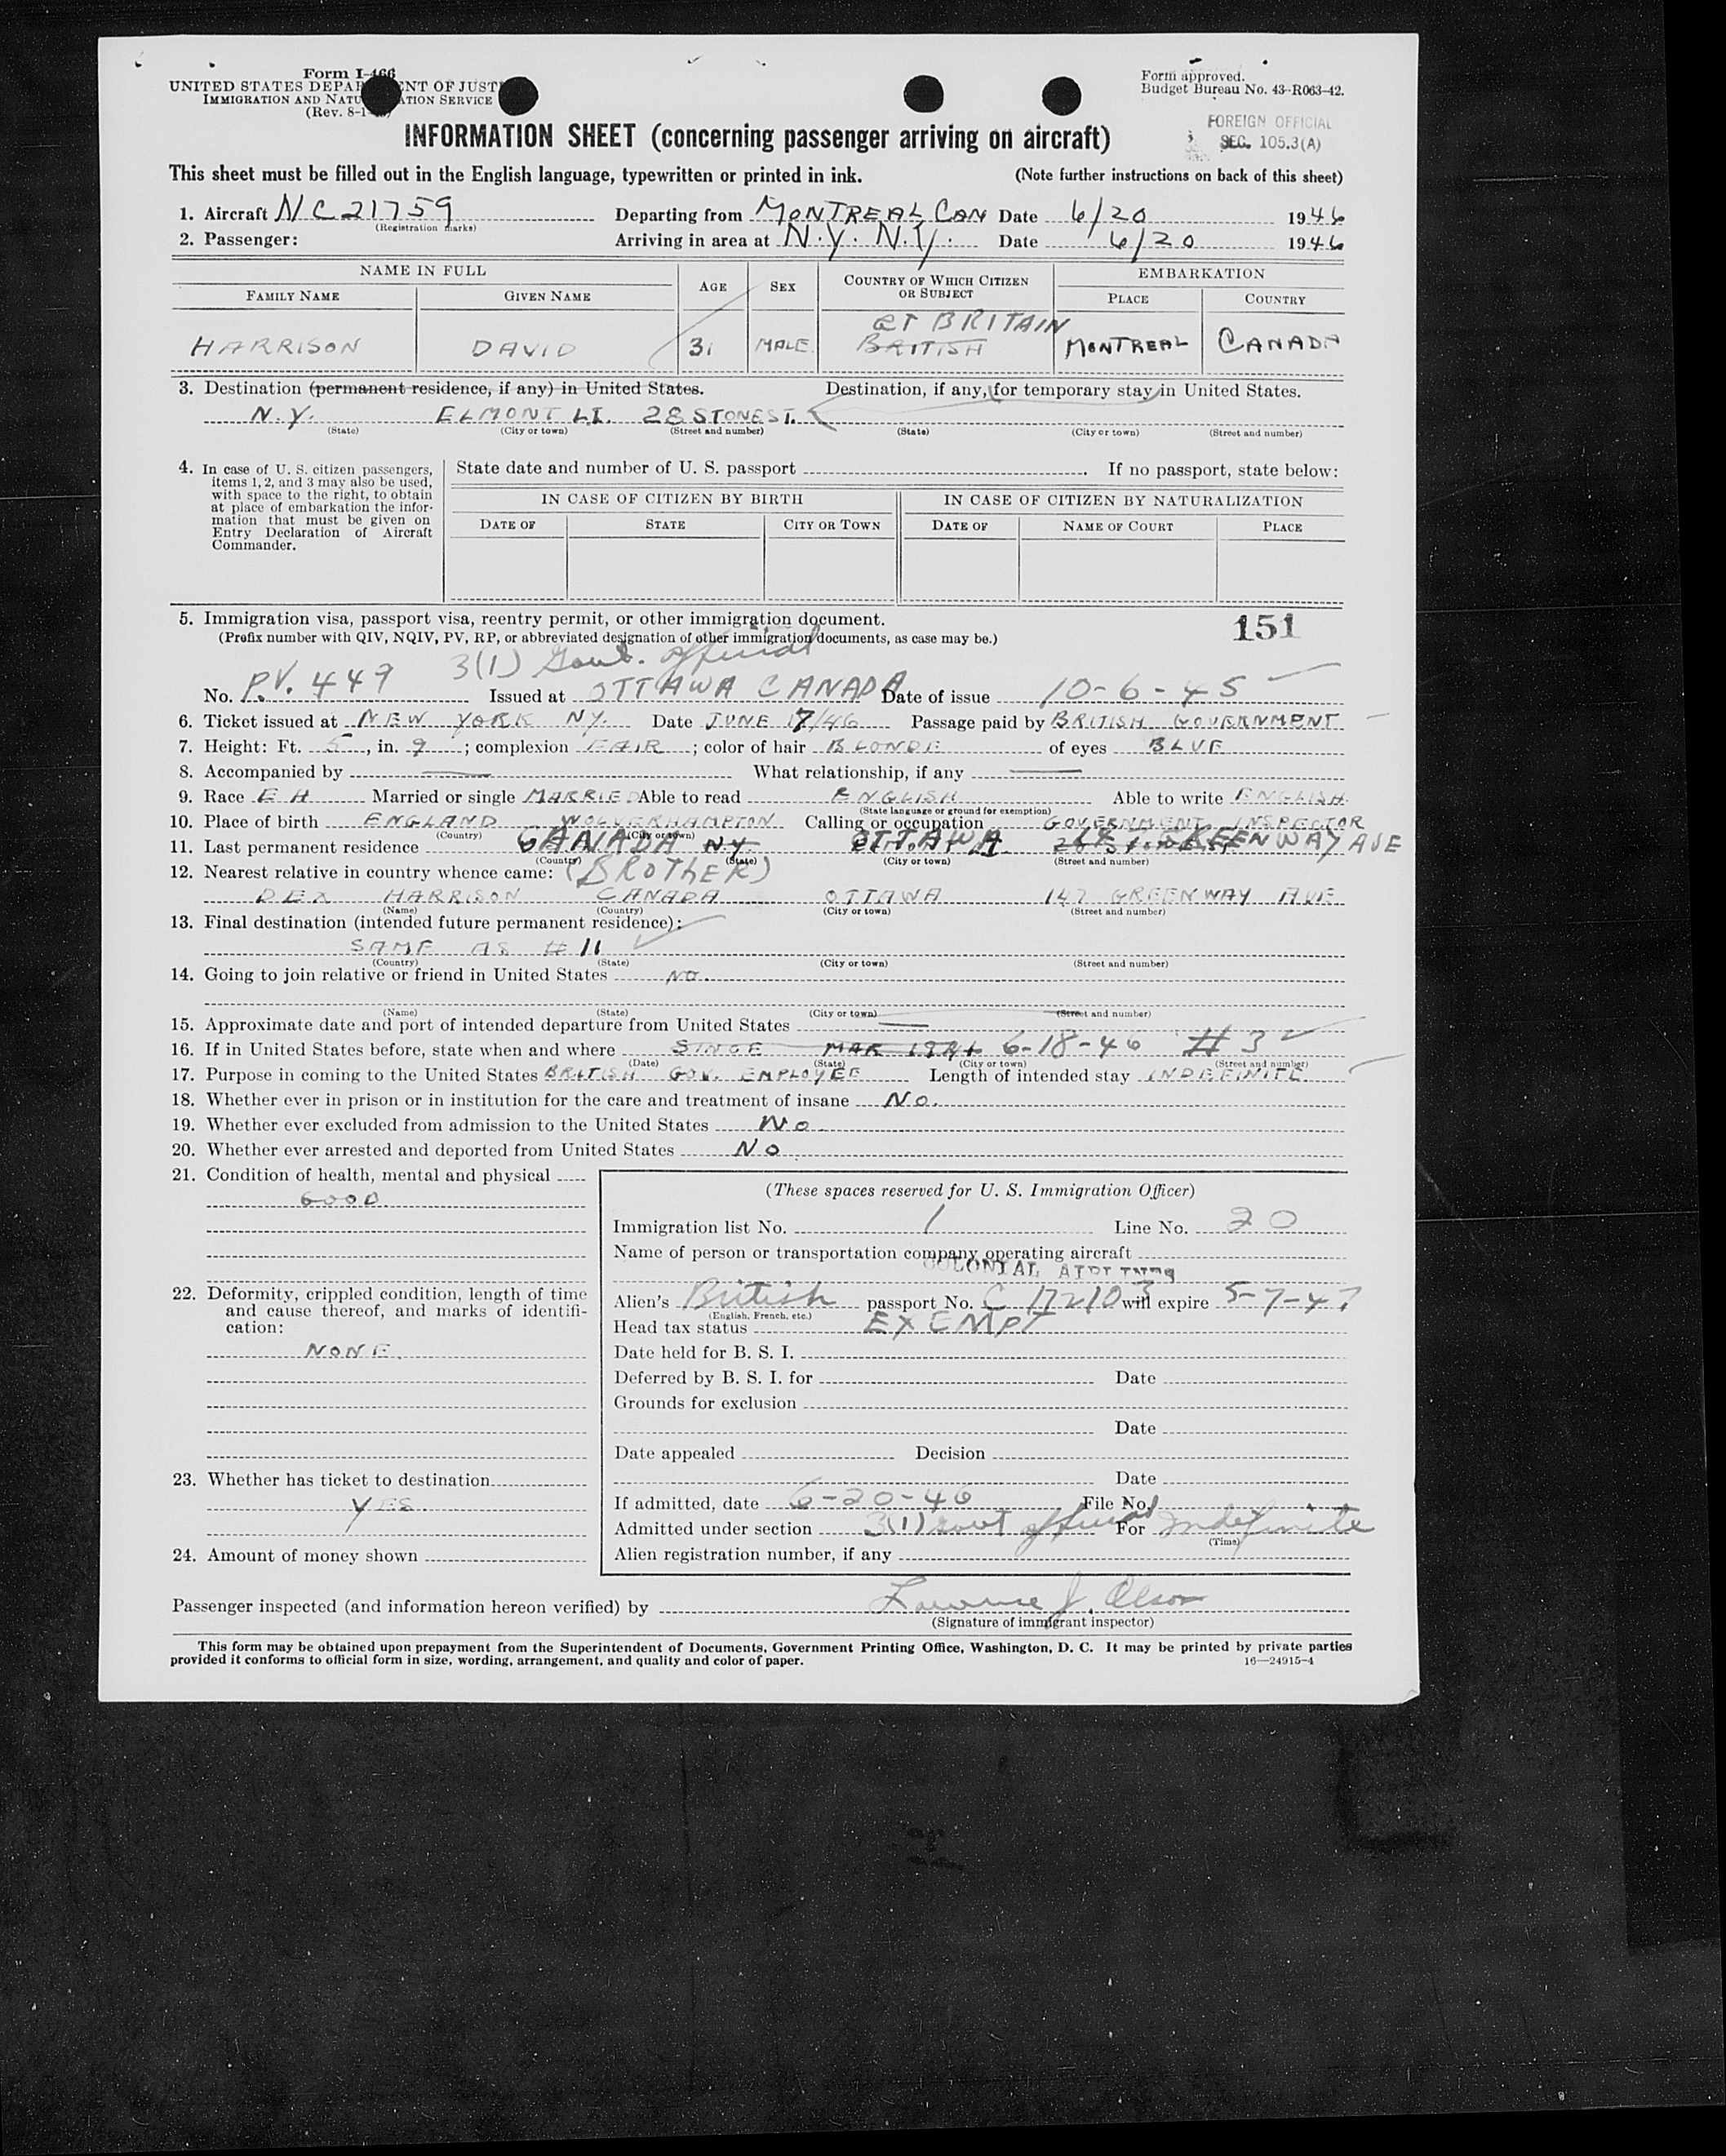 Form I-466
UNITED STATES DEPARTMENT OF JUSTICE
IMMIGRATION AND NATURALIZATION SERVICE
(Rev. 8-1
Form approved.
Budget Bureau No. 43-R063-42.
FOREIGN OFFICIAL
SEC. 105.3(A)
INFORMATION SHEET (concerning passenger arriving on aircraft)
This sheet must be filled out in the English language, typewritten or printed in ink. (Note further instructions on back of this sheet)
1. Aircraft NC21759 Departing from MONTREAL CAN Date 6/20 1946
(Registration marks)
2. Passenger: Arriving in area at N.Y. N.Y. Date 6/20 1946
NAME IN FULL AGE SEX COUNTRY OF WHICH CITIZEN OR SUBJECT EMBARKATION
FAMILY NAME GIVEN NAME PLACE COUNTRY
GT BRITAIN
HARRISON DAVID 31 MALE BRITISH MONTREAL CANADA
3. Destination (permanent residence, if any) in United States. Destination, if any, for temporary stay in United States.
N.Y. ELMONT L.I. 28 STONE ST.
(State) (City or town) (Street and number) (State) (City or town) (Street and number)
4. In case of U. S. citizen passengers, items 1, 2, and 3 may also be used, with space to the right, to obtain at place of embarkation the information that must be given on Entry Declaration of Aircraft Commander.
State date and number of U. S. passport . If no passport, state below:
IN CASE OF CITIZEN BY BIRTH IN CASE OF CITIZEN BY NATURALIZATION
DATE OF STATE CITY OR TOWN DATE OF NAME OF COURT PLACE
5. Immigration visa, passport visa, reentry permit, or other immigration document.
(Prefix number with QIV, NQIV, PV, RP, or abbreviated designation of other immigration documents, as case may be.)
151
3(1) Govt. official
No. P.V. 449 Issued at OTTAWA CANADA Date of issue 10-6-45
6. Ticket issued at NEW YORK NY. Date JUNE 17/46 Passage paid by BRITISH GOVERNMENT
7. Height: Ft. 5, in. 9; complexion FAIR; color of hair BLONDE of eyes BLUE
8. Accompanied by — What relationship, if any —
9. Race E H Married or single MARRIED Able to read ENGLISH Able to write ENGLISH
(State language or ground for exemption)
10. Place of birth ENGLAND WOLVERHAMPTON Calling or occupation GOVERNMENT INSPECTOR
(Country) (City or town)
11. Last permanent residence CANADA NY OTTAWA GREENWAY AVE
(Country) (State) (City or town) (Street and number)
12. Nearest relative in country whence came: (BROTHER)
DEX HARRISON CANADA OTTAWA 147 GREENWAY AVE
(Name) (Country) (City or town) (Street and number)
13. Final destination (intended future permanent residence):
SAME AS # 11
(Country) (State) (City or town) (Street and number)
14. Going to join relative or friend in United States NO.
(Name) (State) (City or town) (Street and number)
15. Approximate date and port of intended departure from United States —
16. If in United States before, state when and where SINCE MAR 1946 6-18-46 # 3
(Date) (State) (City or town) (Street and number)
17. Purpose in coming to the United States BRITISH GOV. EMPLOYEE Length of intended stay INDEFINITE.
18. Whether ever in prison or in institution for the care and treatment of insane No.
19. Whether ever excluded from admission to the United States No
20. Whether ever arrested and deported from United States No
21. Condition of health, mental and physical
GOOD.
22. Deformity, crippled condition, length of time and cause thereof, and marks of identification:
NONE.
23. Whether has ticket to destination
YES.
24. Amount of money shown
(These spaces reserved for U. S. Immigration Officer)
Immigration list No. 1 Line No. 20
Name of person or transportation company operating aircraft
COLONIAL AIRLINES
Alien's British passport No. C 172103 will expire 5-7-47
(English, French, etc.)
Head tax status EXEMPT
Date held for B. S. I.
Deferred by B. S. I. for Date
Grounds for exclusion
Date
Date appealed Decision
Date
If admitted, date 6-20-46 File No.
Admitted under section 3(1) Govt official For Indefinite
(Time)
Alien registration number, if any
Passenger inspected (and information hereon verified) by Lawrence J. Olson
(Signature of immigrant inspector)
This form may be obtained upon prepayment from the Superintendent of Documents, Government Printing Office, Washington, D. C. It may be printed by private parties
provided it conforms to official form in size, wording, arrangement, and quality and color of paper. 16—24915-4